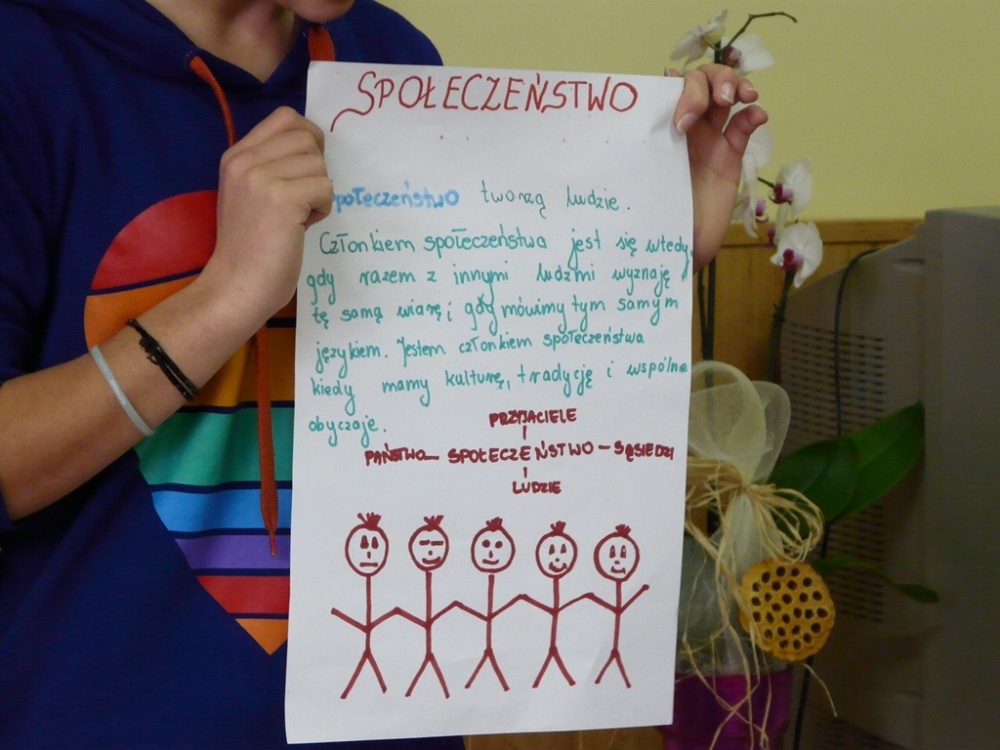 SPOŁECZEŃSTWO
społeczeństwo tworzą ludzie.
Członkiem społeczeństwa jest się wtedy,
gdy razem z innymi ludźmi wyznaję
tę samą wiarę i gdy mówimy tym samym
językiem. Jestem członkiem społeczeństwa
kiedy mamy kulturę, tradycję i wspólne
obyczaje.
PRZYJACIELE
PAŃSTWO - SPOŁECZEŃSTWO - SĄSIEDZI
LUDZIE